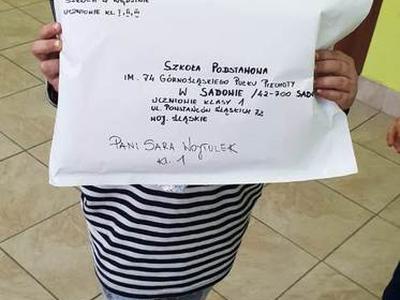 UCZNIOWIE KL. I, II, III
SZKOŁA PODSTAWOWA
IM. 74 GÓRNOŚLĄSKIEGO PUŁKU PIECHOTY
W SADOWIE /42-700
UCZNIOWIE KLASY 1
UL. POWSTAŃCÓW ŚLĄSKICH
WOJ. ŚLĄSKIE
PANI SARA WOJTULEK
KL. 1